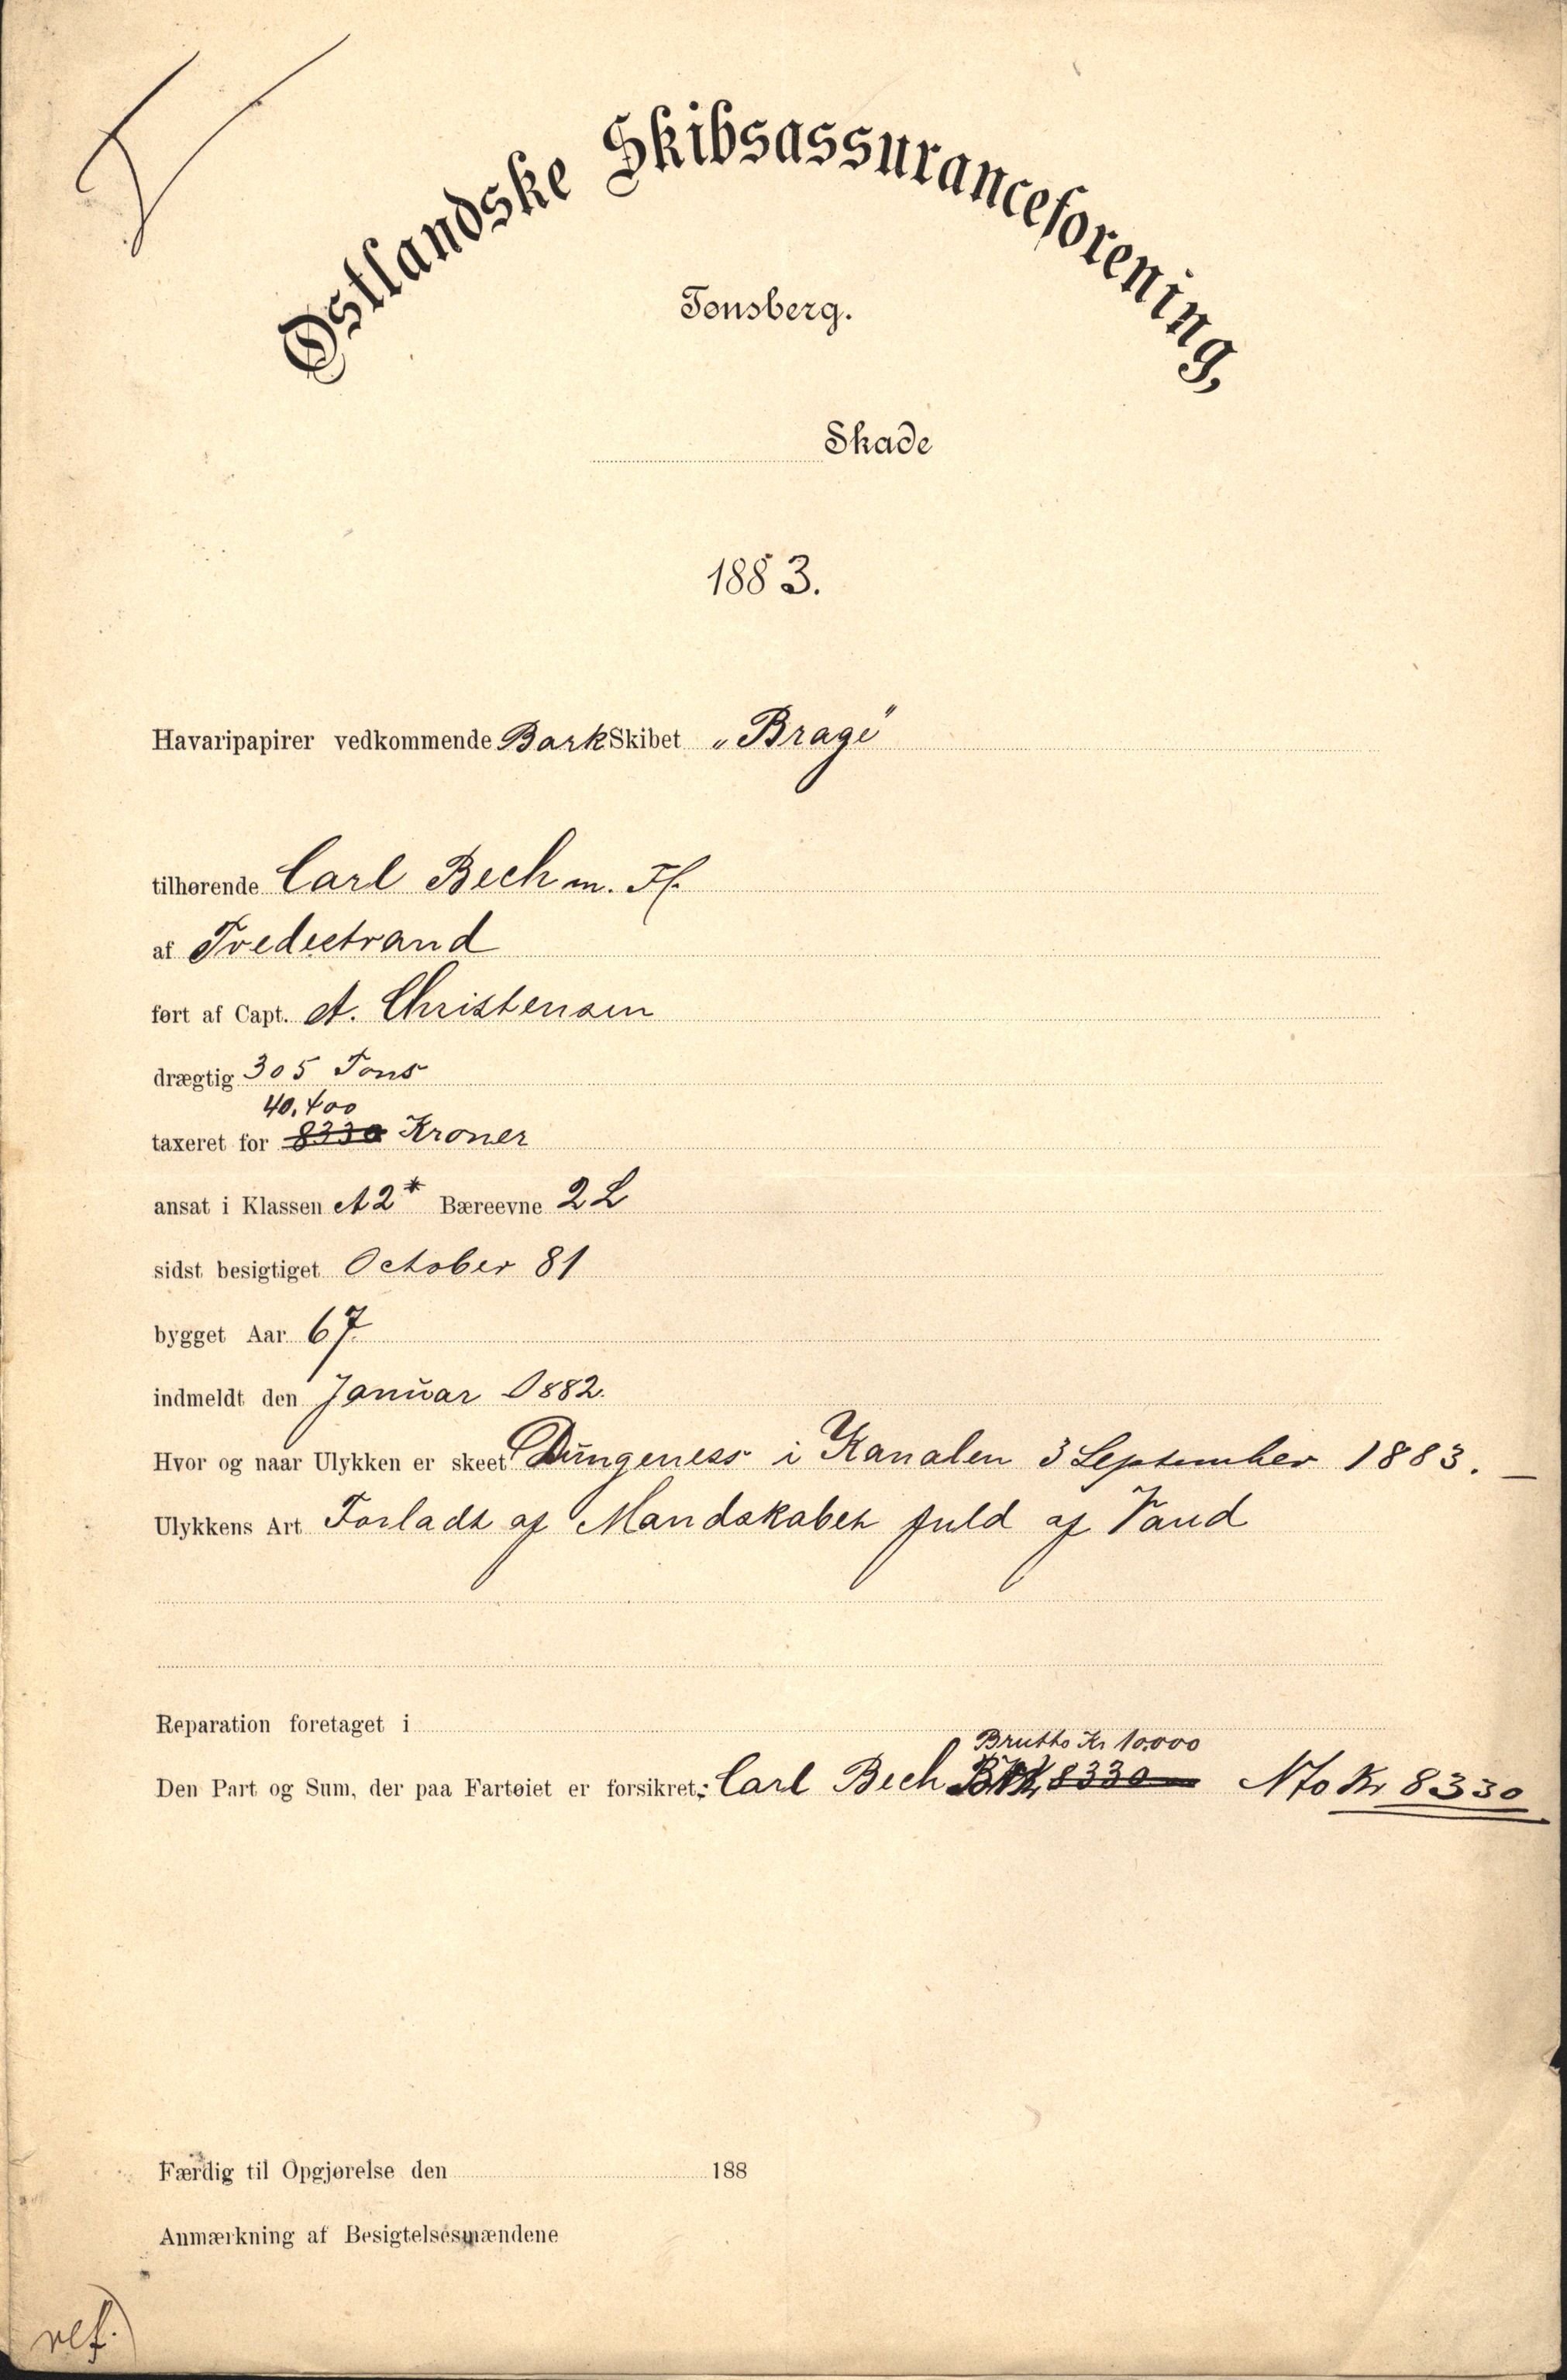 Østlandske Skibsassuranceforening,
Tønsberg.
Skade
1883.
Havaripapirer vedkommende Bark Skibet „Brage"
tilhørende Carl Bech m. Fl.
af Tvedestrand
ført af Capt. A. Christensen
drægtig 305 Tons
40,400
taxeret for 8330 Kroner
ansat i Klassen A2* Bæreevne 2 L
sidst besigtiget October 81
bygget Aar 67
indmeldt den Januar 1882.
Hvor og naar Ulykken er skeet Dungeness i Kanalen 3 September 1883. —
Ulykkens Art Forladt af Mandskabet fuld af Vand
Reparation foretaget i
Brutto Kr 10,000
Den Part og Sum, der paa Fartøiet er forsikret: Carl Bech 8330 Nto Kr 8330
Færdig til Opgjørelse den 188
Anmærkning af Besigtelsesmændene
ref.)